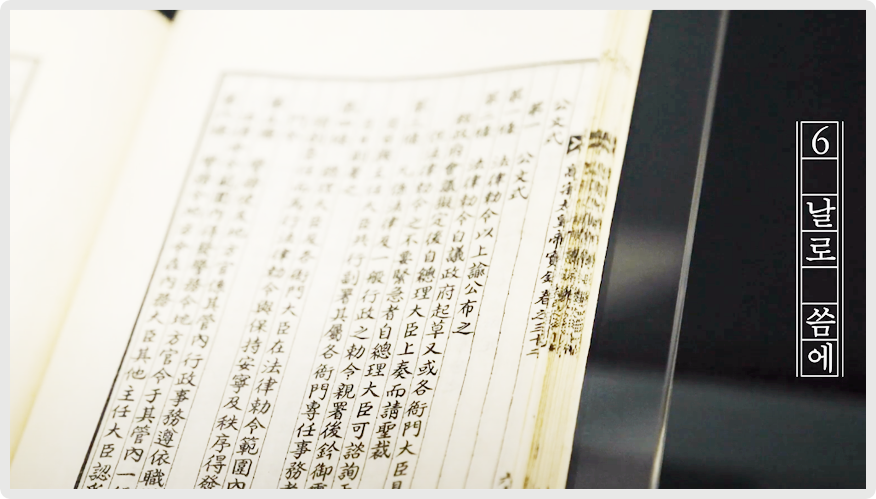 高宗太皇帝實錄卷之三十二
公文式
第一 公文式
第一條 法律勅令以上諭公布之
第二條 法律勅令自議政府起草又或各衙門大臣具
政府會議擬定後自總理大臣上奏而請聖裁
但法律勅令之不要緊急者自總理大臣可諮詢于
凡係法律及一般行政之勅令親署後鈐御
主任大臣共行副署其屬各衙門專任事務者
總理大臣及各衙門大臣在法律勅令範圍內
行法律勅令與保持安寧及秩序得發
警務使及地方官 其管內行政事務遵依職
範圍內得發警務令地方官令于其管內一
警務 地方官令在內務大臣其他主任大臣認
6 날로 씀에